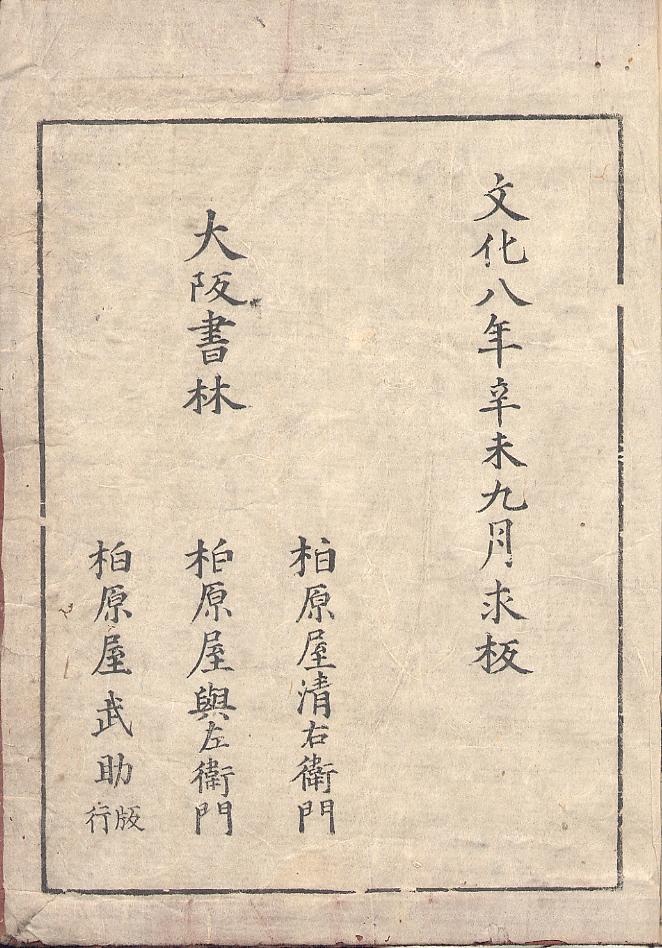 文化八年辛未九月求板
柏原屋清右衛門
大阪書林
柏原屋與左衛門
柏原屋武助
版行